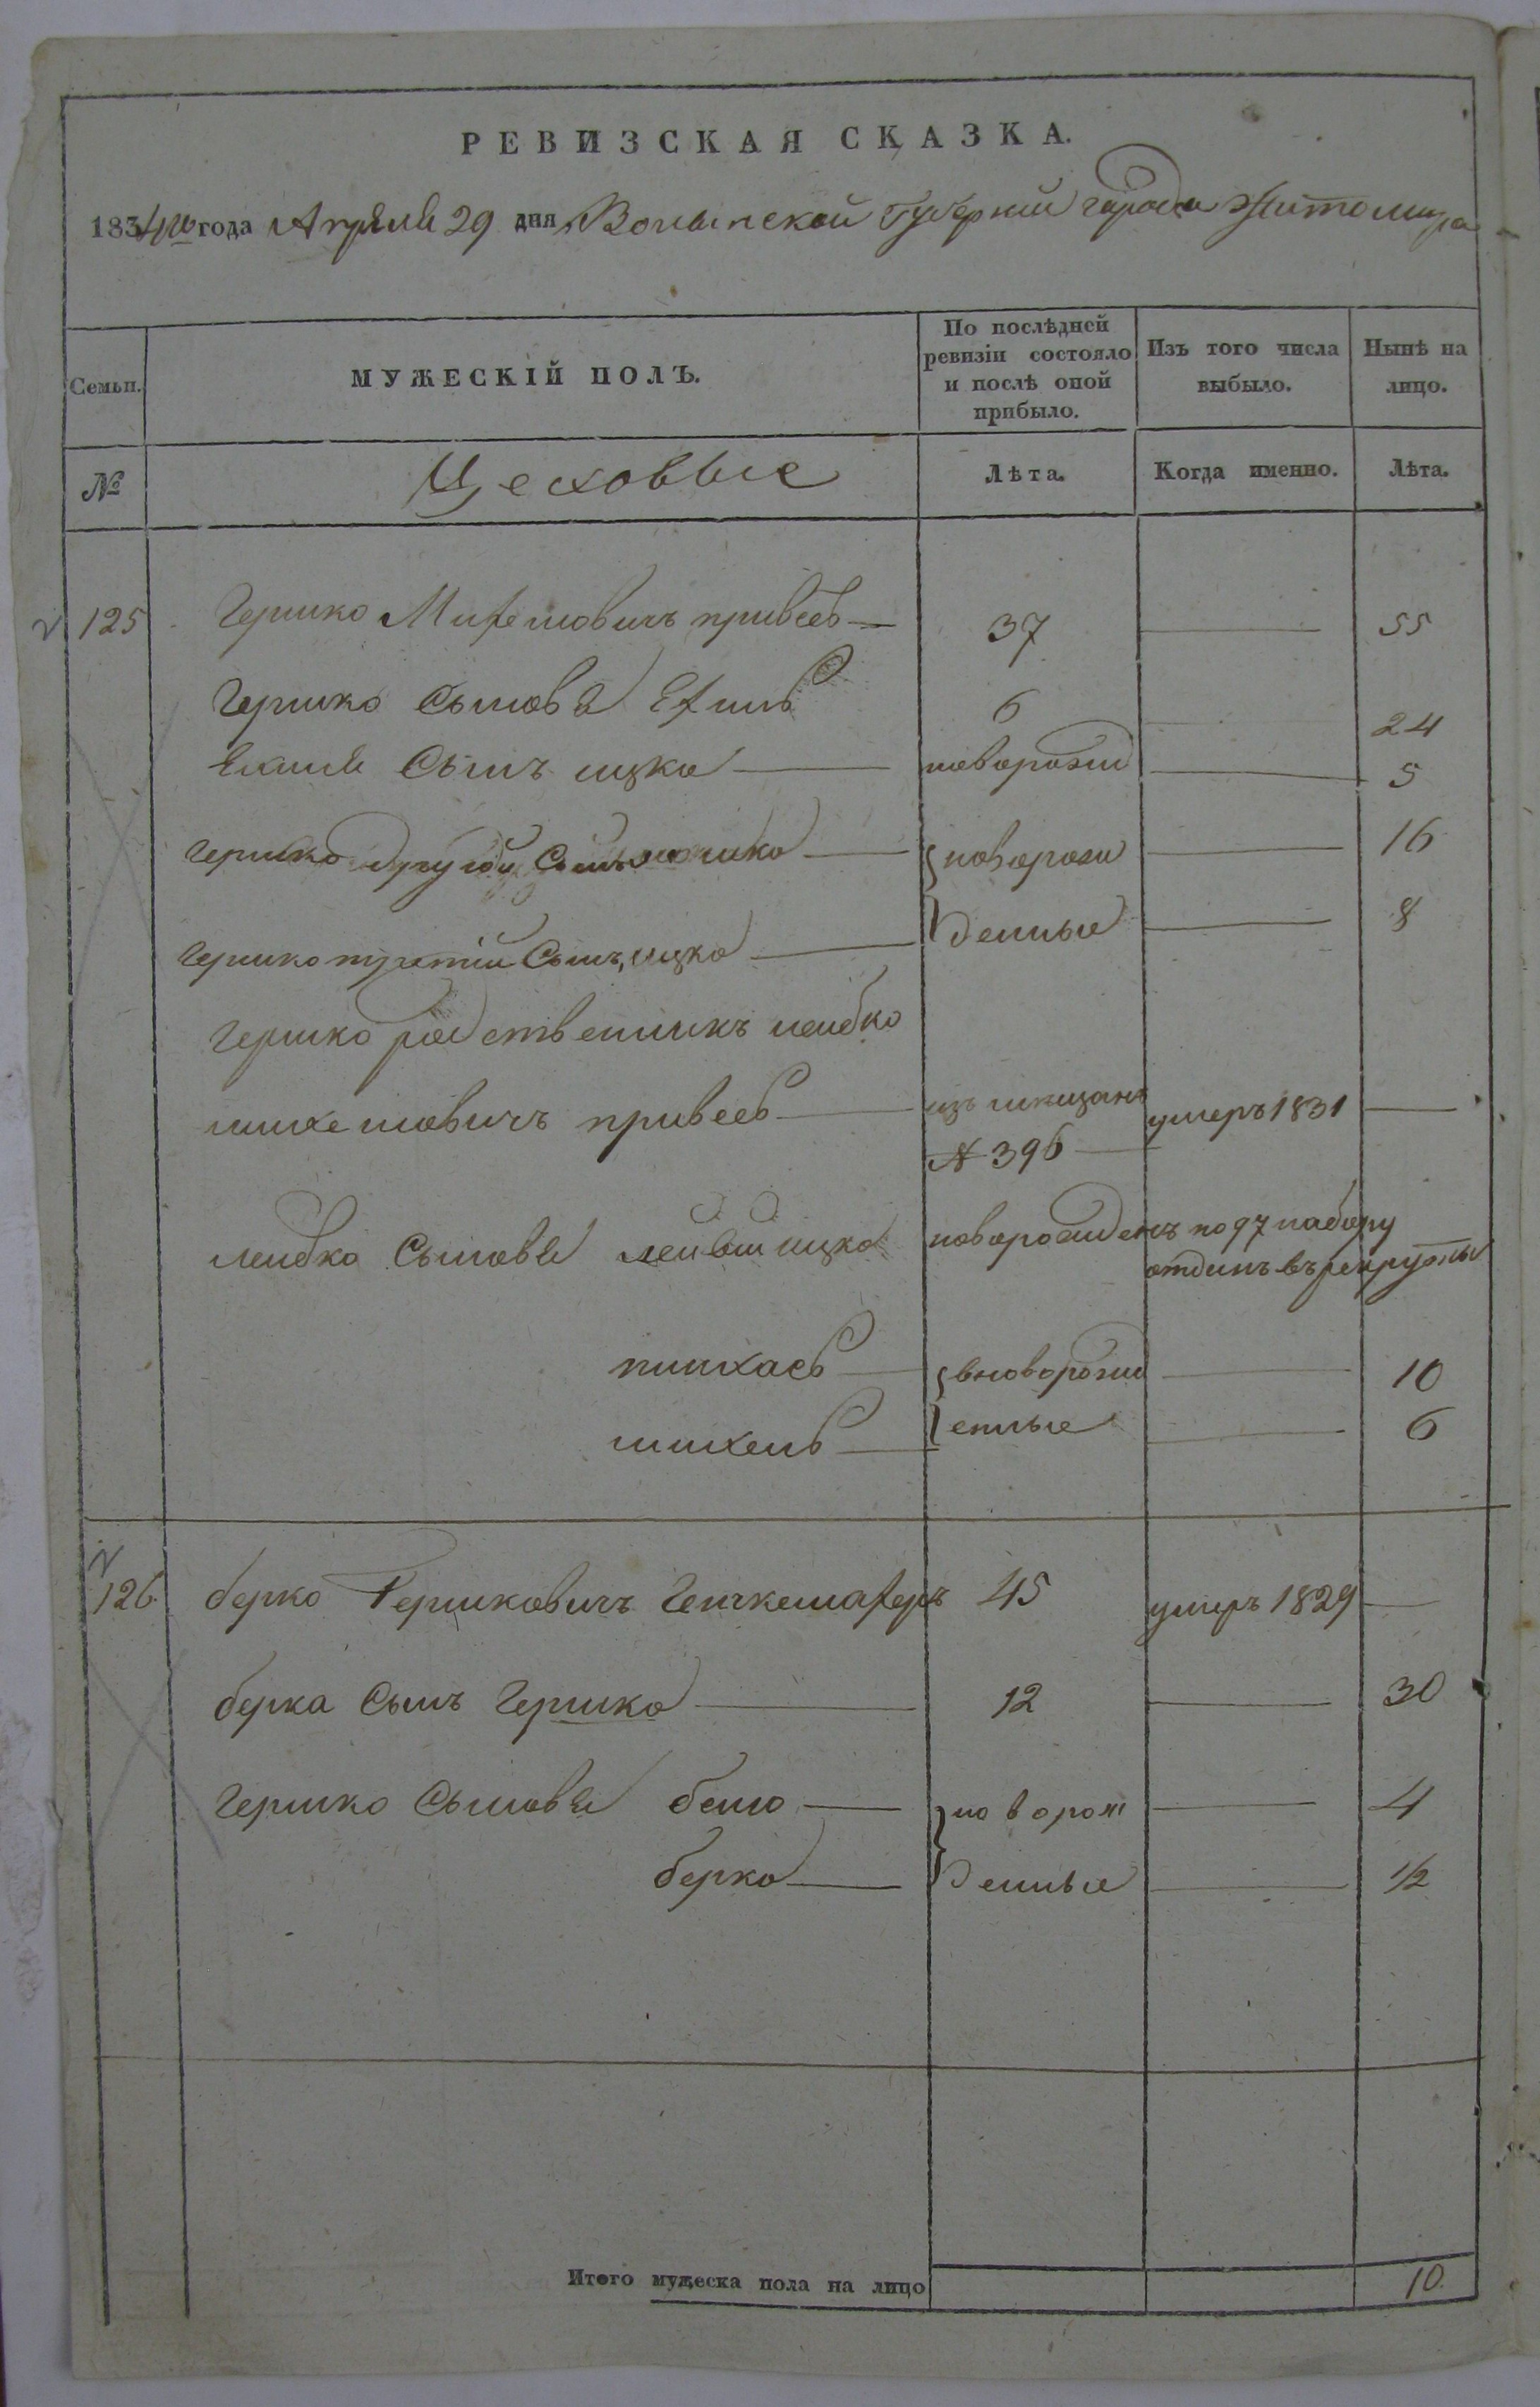 РЕВИЗСКАЯ СКАЗКА.
1834го года Апреля 29 дня Волынской Губернии города Житомира
Семьи.
МУЖЕСКІЙ ПОЛЪ.
По послѣдней ревизіи состояло и послѣ оной прибыло.
Изъ того числа выбыло.
Нынѣ на лицо.
№
Цеховые
Лѣта.
Когда именно.
Лѣта.
125 Гершко Михелевичъ 37 55
Гершко Сыновья 6 24
Сынъ ицко новорожд 5
Гершко другой Сынъ { новорож 16
Гершко третій Сынъ, ицко денные 8
Гершко родственникъ лейбко
михелевичъ изъ мещанъ умеръ 1831
№ 396
лейбко Сыновья ицко новорожденъ по 97 набору
отданъ въ рекруты
пинхасъ { вноворожд 10
михель енные 6
126 берко Гершковичъ 45 умеръ 1829
берка Сынъ Гершко 12 30
Гершко Сыновья новорож 4
берко денные 1/2
Итого мужеска пола на лицо 10.